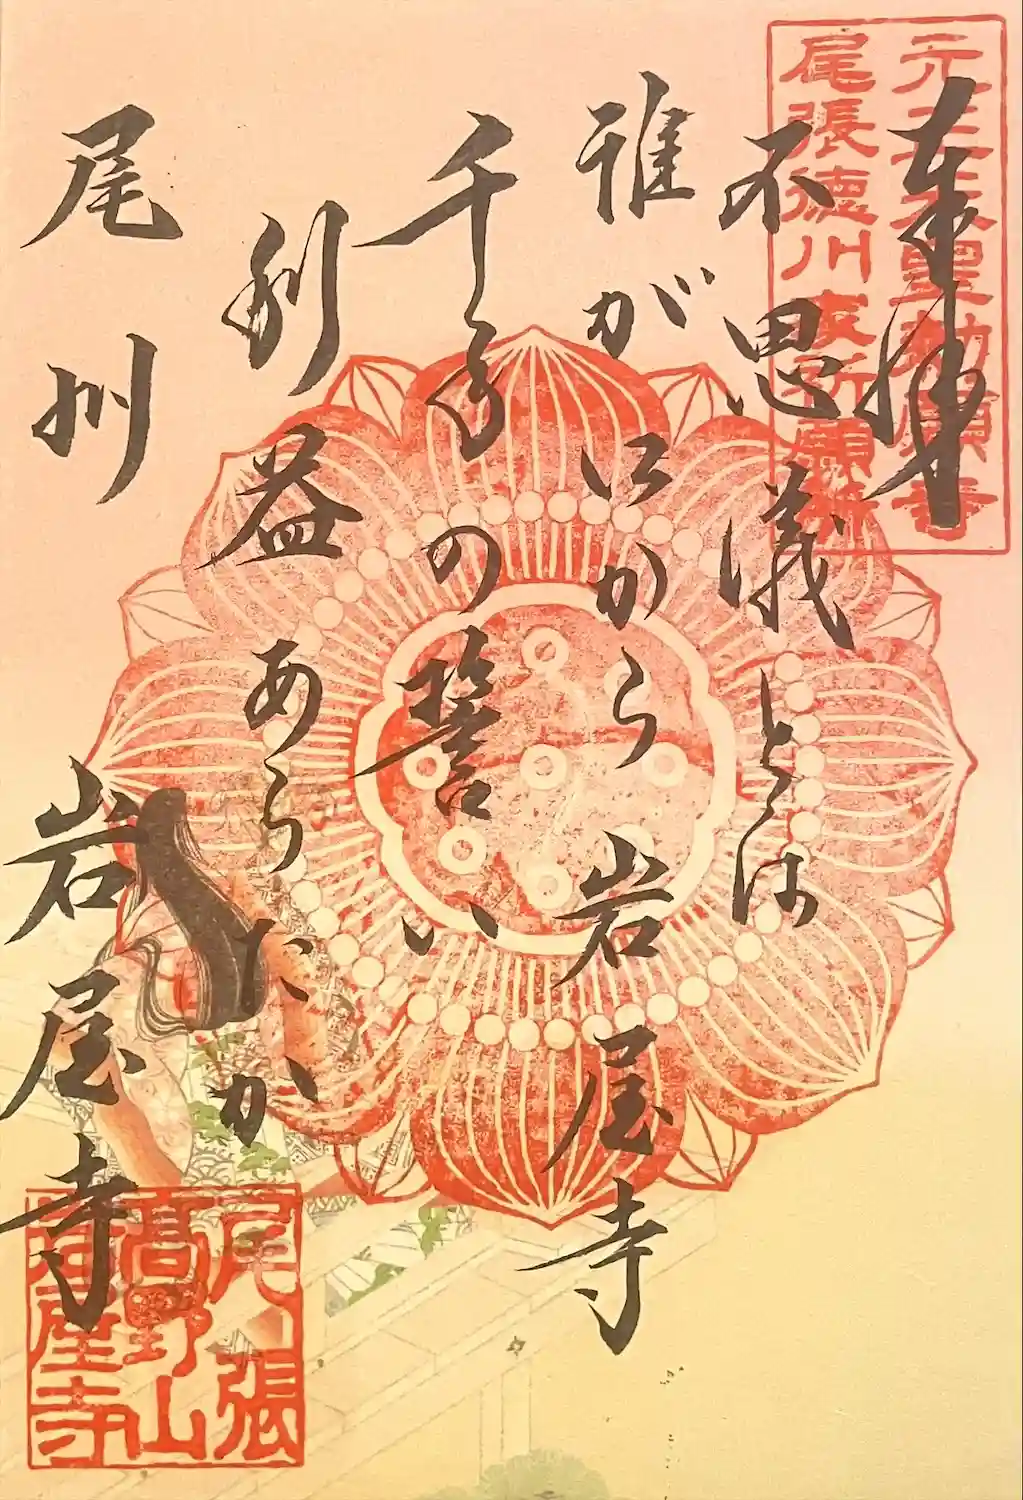 奉拝
不思儀とは
誰が江から岩屋寺
千る の誓い
利益あらだか
尾州 岩屋寺
元正天皇勅願寺
尾張徳川家祈願所
尾張
高野山
岩屋寺